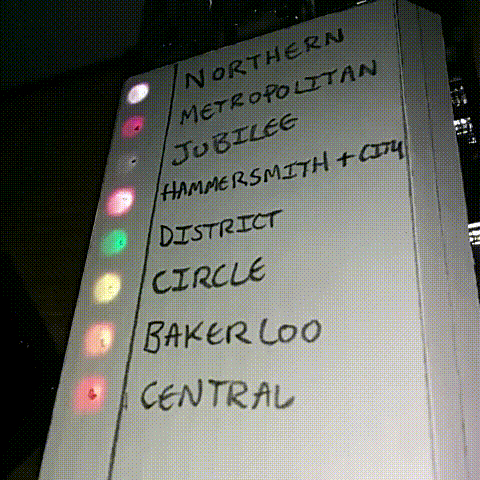 NORTHERN
METROPOLITAN
JUBILEE
HAMMERSMITH + CITY
DISTRICT
CIRCLE
BAKERLOO
CENTRAL